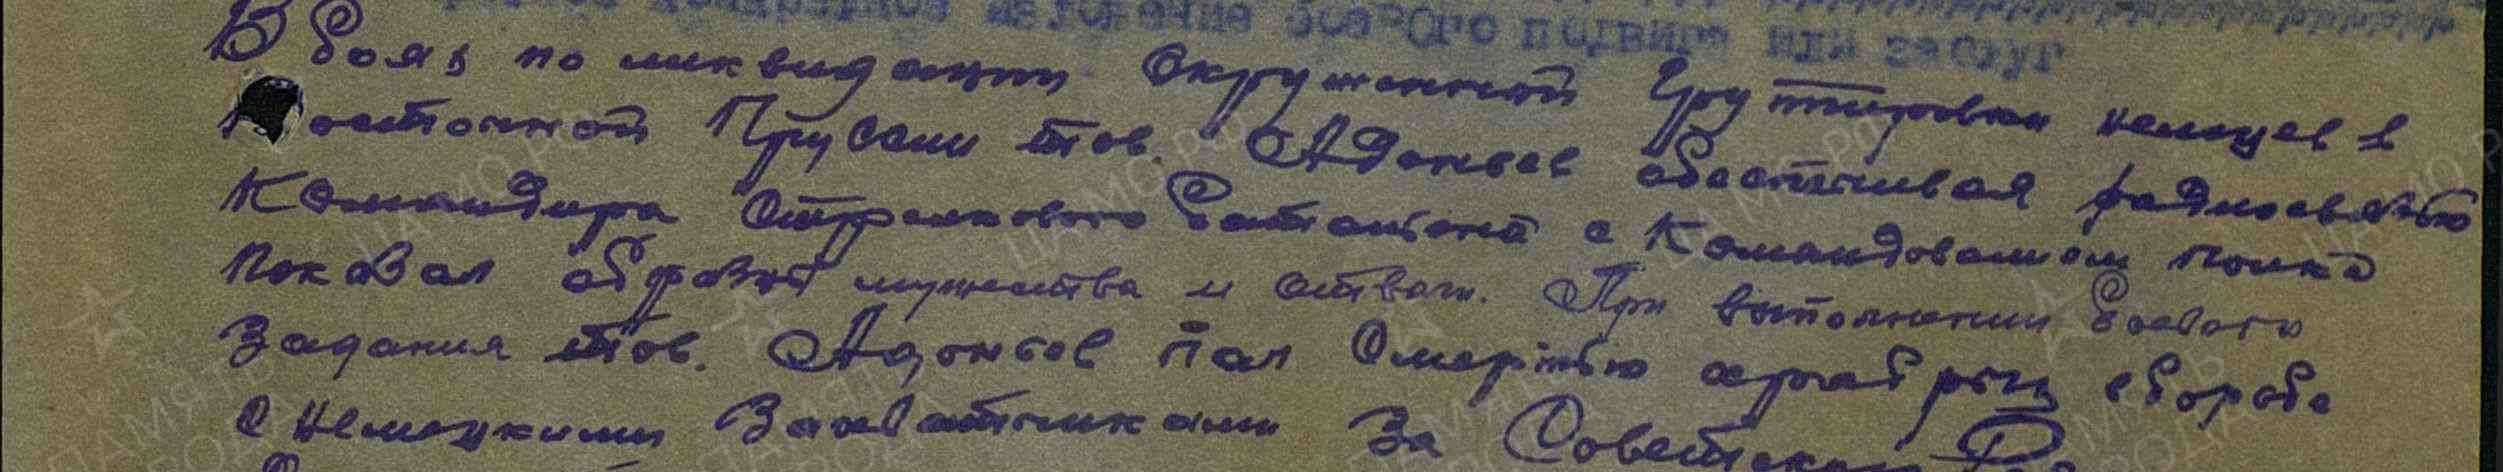 конкретное изложение боевого подвига или заслуг
В боях по ликвидации Окруженной Группировки немцев в
Восточной Пруссии тов. Адоньев обеспечивая радиосвязью
Командира Стрелкового батальона с Командованием полка
показал образец мужества и отваги. При выполнении боевого
Задания тов. Адоньев пал Смертью храбрых в борьбе
с немецкими Захватчиками За Советскую